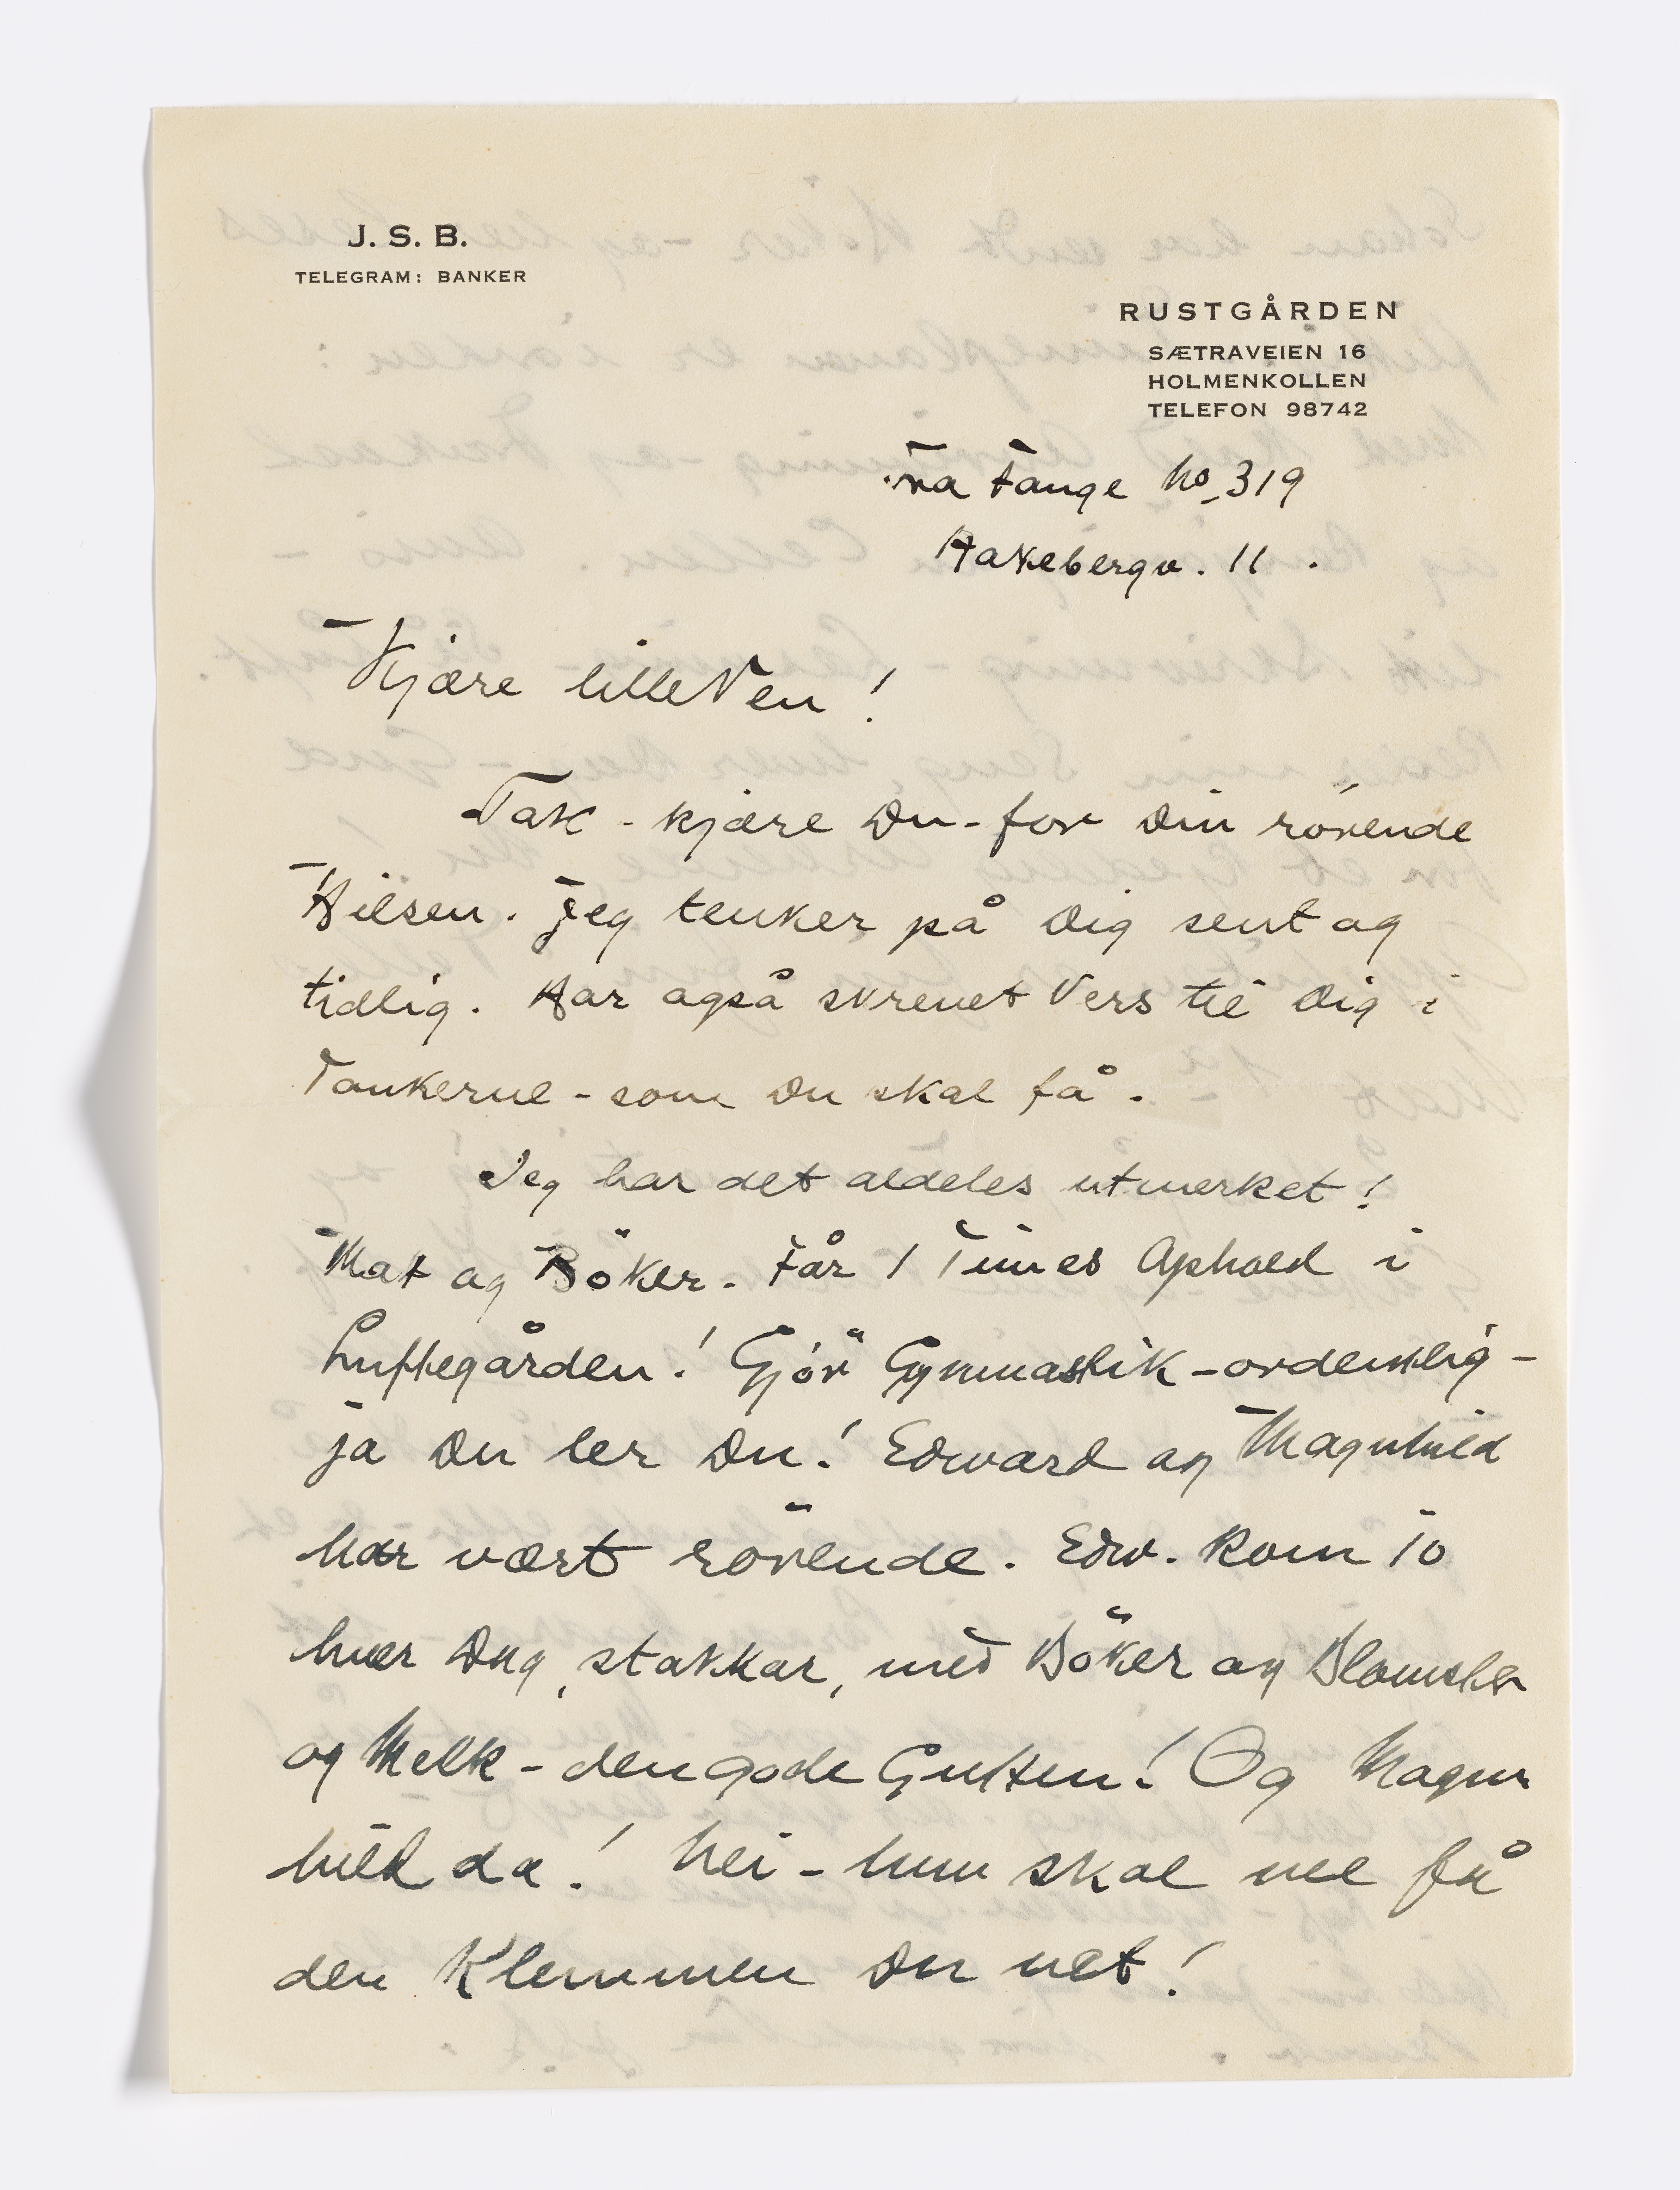 J. S. B.
TELEGRAM: BANKER
RUSTGÅRDEN
SÆTRAVEIEN 16
HOLMENKOLLEN
TELEFON 98742
Fra Fange No 319
Åkebergv. 11.
Kjære lille Ven!
Tak - kjære Du - for Din rörende
Hilsen. Jeg tenker på Dig sent og
tidlig. Har også skrevet Vers til Dig i
Tankerne - som Du skal få.
Jeg har det aldeles utmerket!
Mat og Böker. Får 1 Times Ophold i
Luftegården! Gjör Gymnastik - ordentlig -
ja Du ler Du! Edward og Magnhild
har vært rörende. Edw. kom jo
hver Dag, stakkar, med Böker og Blomster
og Melk - den gode Gutten! Og Magn
hild da! Nei - hun skal vel få
den Klemmen Du vet!